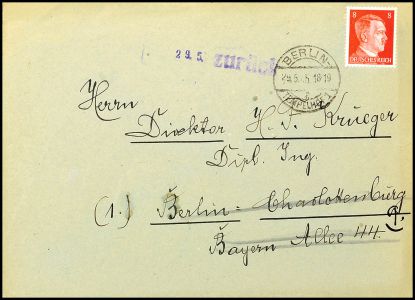 29.5. zurück
BERLIN-
29.5. 5. 18-19
TEMPELHOF 1
8 8
DEUTSCHES REICH
Herrn
Direktor H. v. Krueger
Dipl. Ing.
(1.) Berlin - Charlottenburg 9.
Bayern Allee 44.